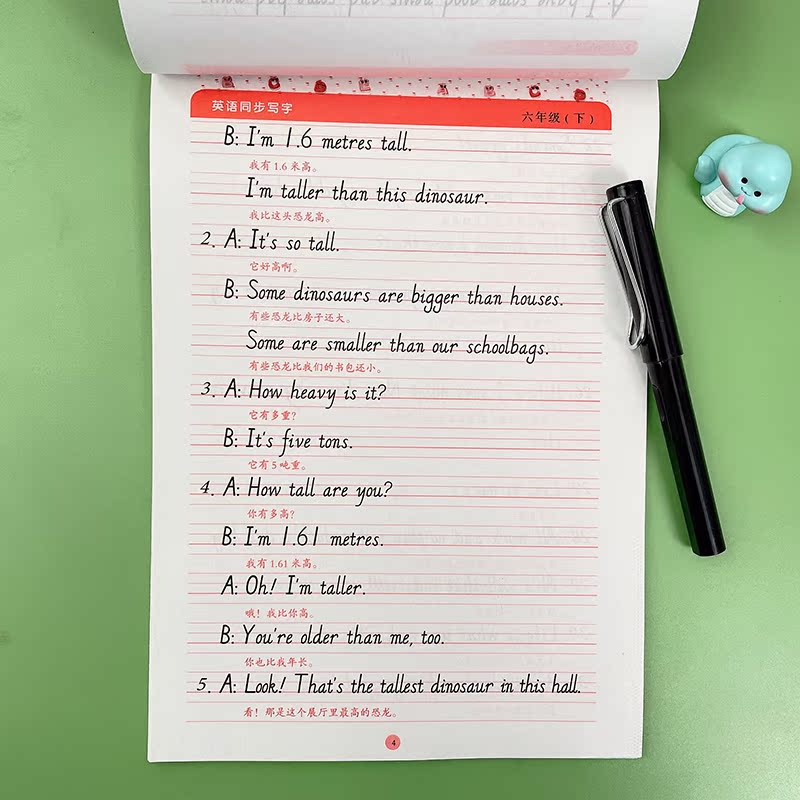 英语同步写字
六年级(下)
B: I'm 1.6 metres tall.
我有 1.6 米高。
I'm taller than this dinosaur.
我比这头恐龙高。
2. A: It's so tall.
它好高啊。
B: Some dinosaurs are bigger than houses.
有些恐龙比房子还大。
Some are smaller than our schoolbags.
有些恐龙比我们的书包还小。
3. A: How heavy is it?
它有多重?
B: It's five tons.
它有 5 吨重。
4. A: How tall are you?
你有多高?
B: I'm 1.61 metres.
我有 1.61 米高。
A: Oh! I'm taller.
哦!我比你高。
B: You're older than me, too.
你也比我年长。
5. A: Look! That's the tallest dinosaur in this hall.
看!那是这个展厅里最高的恐龙。
4